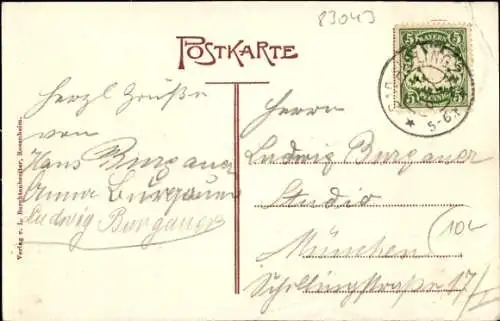 83043
POSTKARTE
5 BAYERN 5
5 PFENNIG 5
5-6
Herzl Grüße
von
Hans Burgauer
Anna Burgauer
Ludwig Burgauer
Herrn
Ludwig Burgauer
Studio
München
Schellingstraße 17/I
10.-
Verlag v. L. Rosenheim.